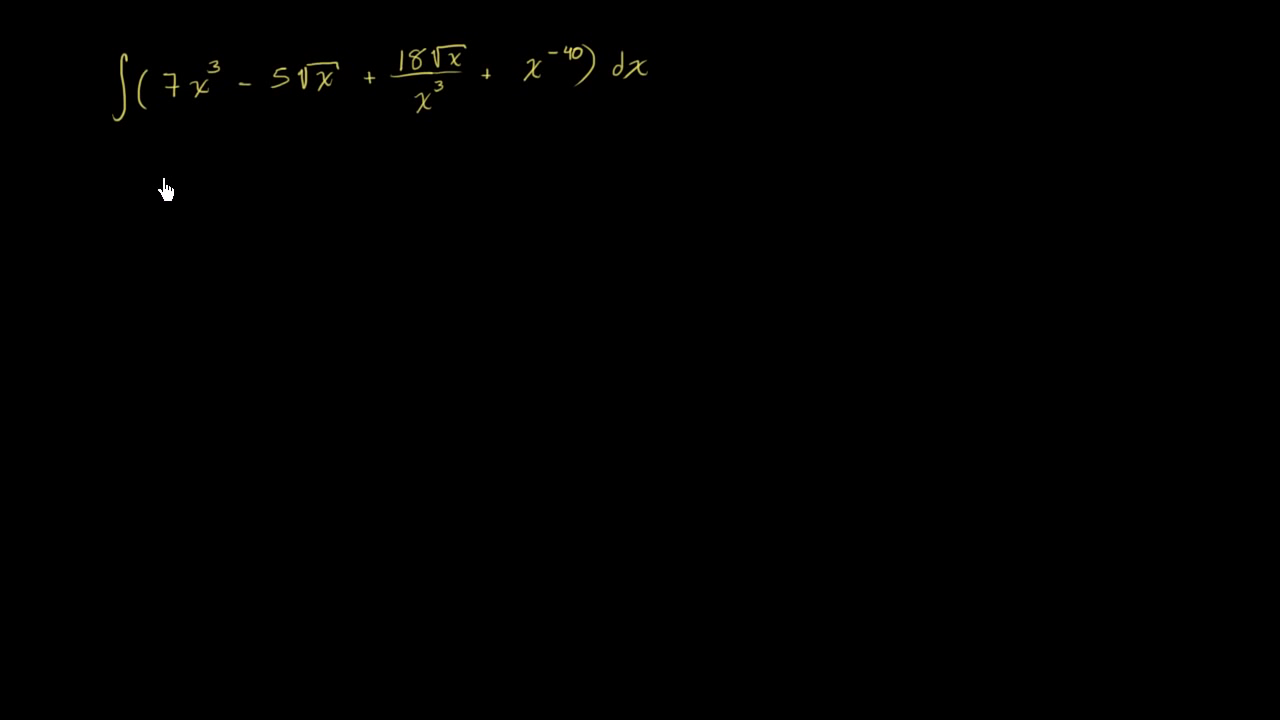 ∫( 7x³ - 5√x + 18√x/x³ + x⁻⁴⁰) dx